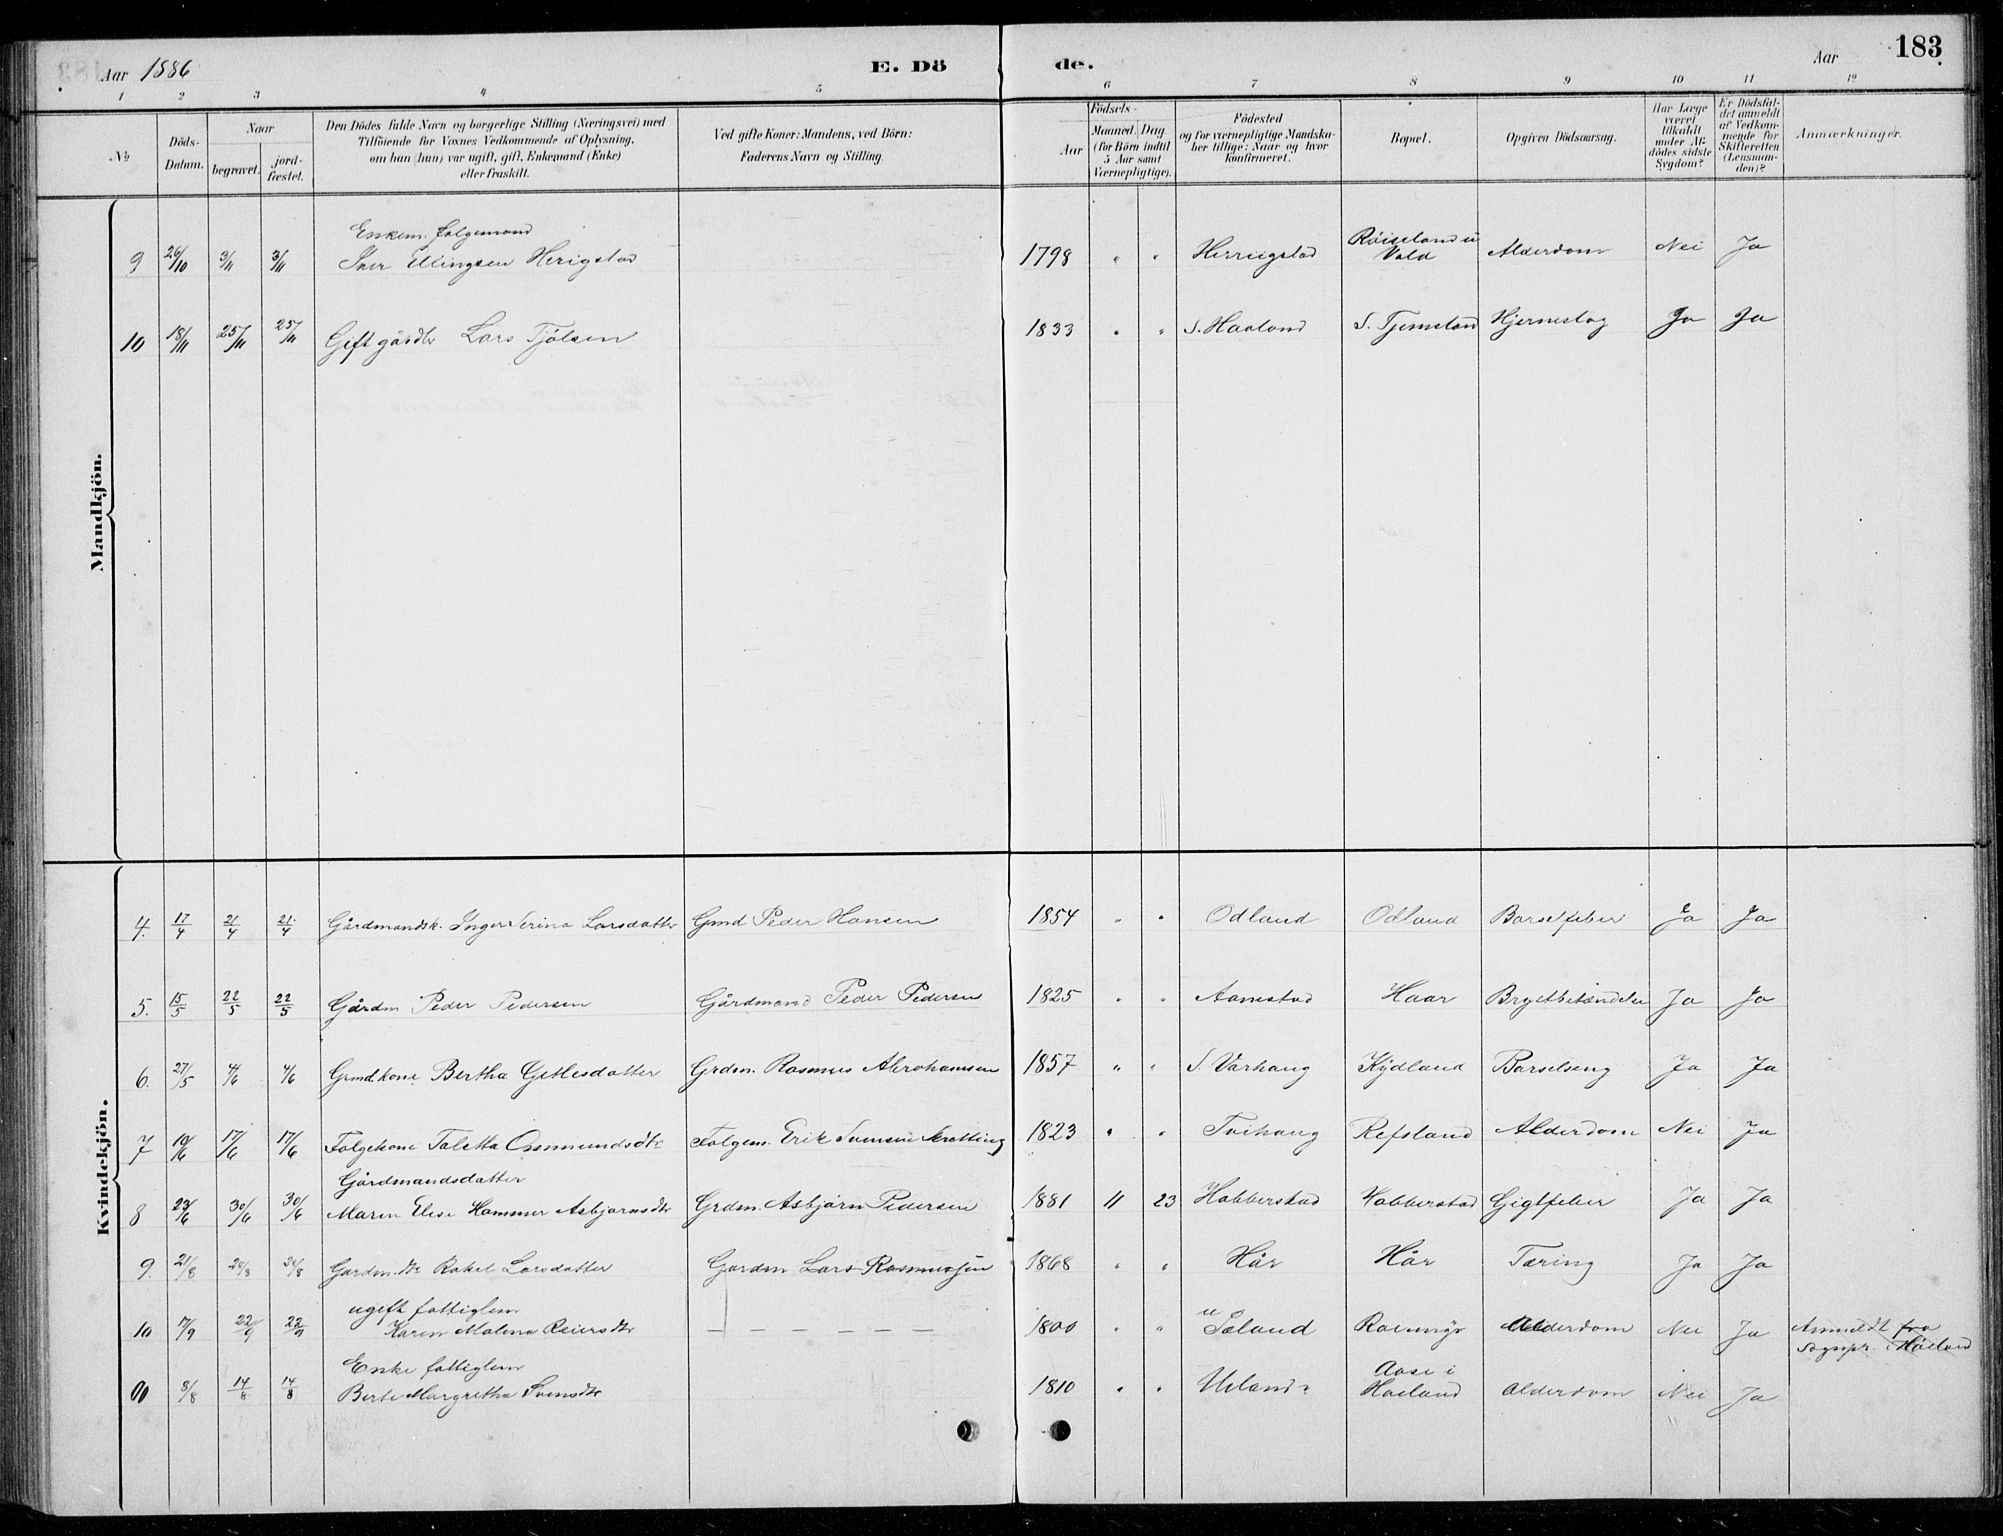 Aar 1886
E. Dö
de.
Aar
183
1 2 3 4 5 6 7 8 9 10 11 12
№
Döds-
Datum.
Naar
begravet.
jord-
fæstet.
Den Dödes fulde Navn og borgerlige Stilling (Næringsvei) med
Tilföiende for Voxnes Vedkommende af Oplysning,
om han (hun) var ugift, gift, Enkemand (Enke)
eller fraskilt.
Ved gifte Koner: Mandens, ved Börn:
Faderens Navn og Stilling.
Födsels-
Aar
Maaned. Dag.
(for Börn indtil
5 Aar samt
Værnepligtige).
Födested
og for værnepligtige Mandska-
ber tillige: Naar og hvor
konfirmeret.
Bopæl.
Opgiven Dödsaarsag.
Har Læge
været
tilkaldt
under Af-
dödes sidste
Sygdom?
Er Dödsfal-
det anmeldt
af Vedkom-
mende for
Skifteretten
(Lensman-
den)?
Anmærkninger.
Mandkjön.
Enkem. folgemand
9 26/10 3/11 3/11 Iver Ellingsen Herigstad 1798 " " Herrigstad Röiseland i Vald Alderdom Nei Ja
10 18/11 25/11 25/11 Gift gårdbr Lars Tjölsen 1833 " " S. Haaland S. Tjemsland Hjerneslag Ja Ja
Kvindekjön.
4. 17/4 21/4 21/4 Gårdmandsk. Inger Serina Larsdatter Gmd Peder Hansen 1854 " " Odland Odland Barselfeber Ja Ja
5. 15/5 22/5 22/5 Gårdm Peder Pedersen Gårdmand Peder Pedersen 1825 " " Aanestad Haar Brystbetændelse Ja Ja
6. 27/5 4/6 4/6 Grmdkone Bertha Getlesdatter Grdm. Rasmus Abrahamsen 1857 " " S. Varhaug Kydland Barselseng Ja Ja
7 10/6 17/6 17/6 Folgekone Taletta Osmundsdtr Folgem. Erik Svensen Aretting 1823 " " Tvihaug Refsland Alderdom Nei Ja
Gårdmandsdatter
8 23/6 30/6 30/6 Maren Elise Hammer Asbjornsdtr Grdm. Asbjörn Pedersen 1881 11 23 Hobberstad Hobberstad Gigtfeber Ja Ja
9. 21/8 28/8 28/8 Gardm. dtr Rakel Larsdatter Gardm Lars Rasmussen 1868 " " Hår Hår Tæring Ja Ja
ugift fattiglem
10 17/9 22/9 22/9 Karen Malena Reiersdtr — — — — — — 1800 " " Alderdom Nei Ja Anmeldt fra
Sognpr. i Höiland
Enke fattiglem
8/8 14/8 14/8 Berte Margretha Svensdtr 1810 " " Ueland? Aase i Höeland Alderdom Nei Ja